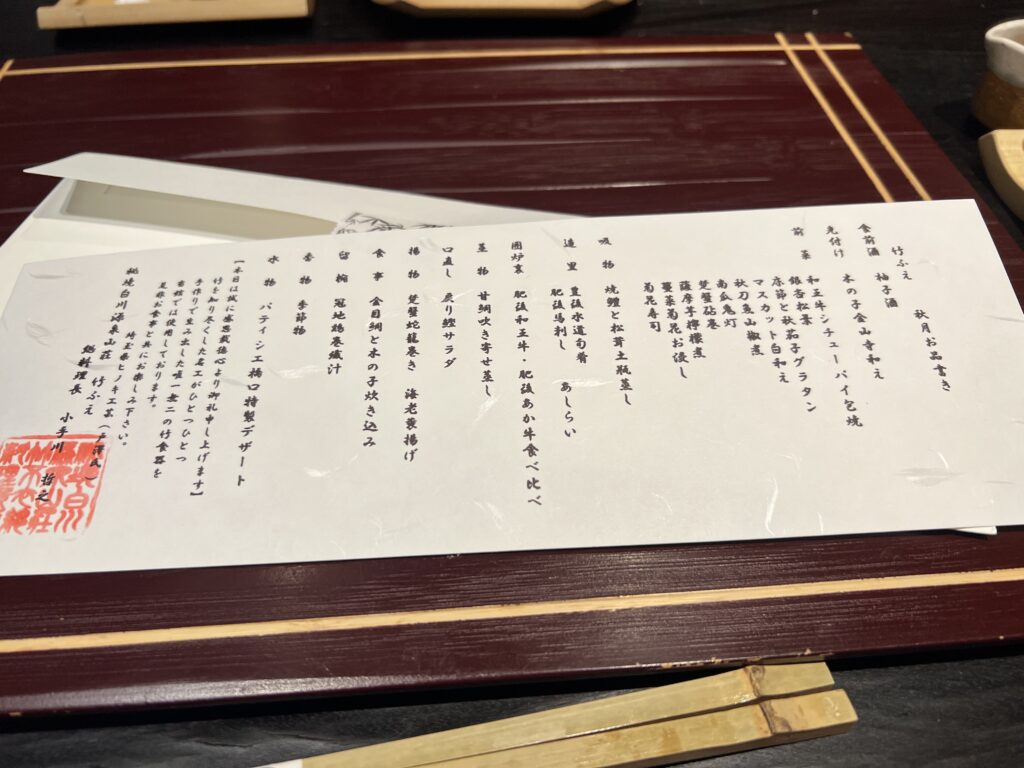 竹ふえ　秋月お品書き
食前酒　柚子酒
先付け　木の子金山寺和え
前菜　和王牛シチューパイ包焼
銀杏松葉
床節と秋茄子グラタン
マスカット白和え
秋刀魚山椒煮
南瓜鬼灯
楚蟹砧巻
薩摩芋檸檬煮
菊花お浸し
菊花寿司
吸物　焼鱧と松茸土瓶蒸し
造里　豊後水道旬肴　あしらい
肥後馬刺し
囲炉裏　肥後和王牛・肥後あか牛食べ比べ
蒸物　甘鯛吹き寄せ蒸し
口直し　炙り鰹サラダ
揚物　楚蟹蛇籠巻き　海老黄揚げ
食事　金目鯛と木の子炊き込み
留椀　冠地鶏巻繊汁
香物　季節物
水物　パティシエ橋口特製デザート
【本日は誠に感恩報徳心より御礼申し上げます】
竹を知り尽くした名工がひとつひとつ
手作りで生み出した唯一無二の竹食器を
当館では使用しております。
是非お食事と共にお楽しみ下さい。
埼玉県ヒノキ工芸（戸澤氏）
秘境白川源泉山荘　竹ふえ
総料理長　小手川　哲之